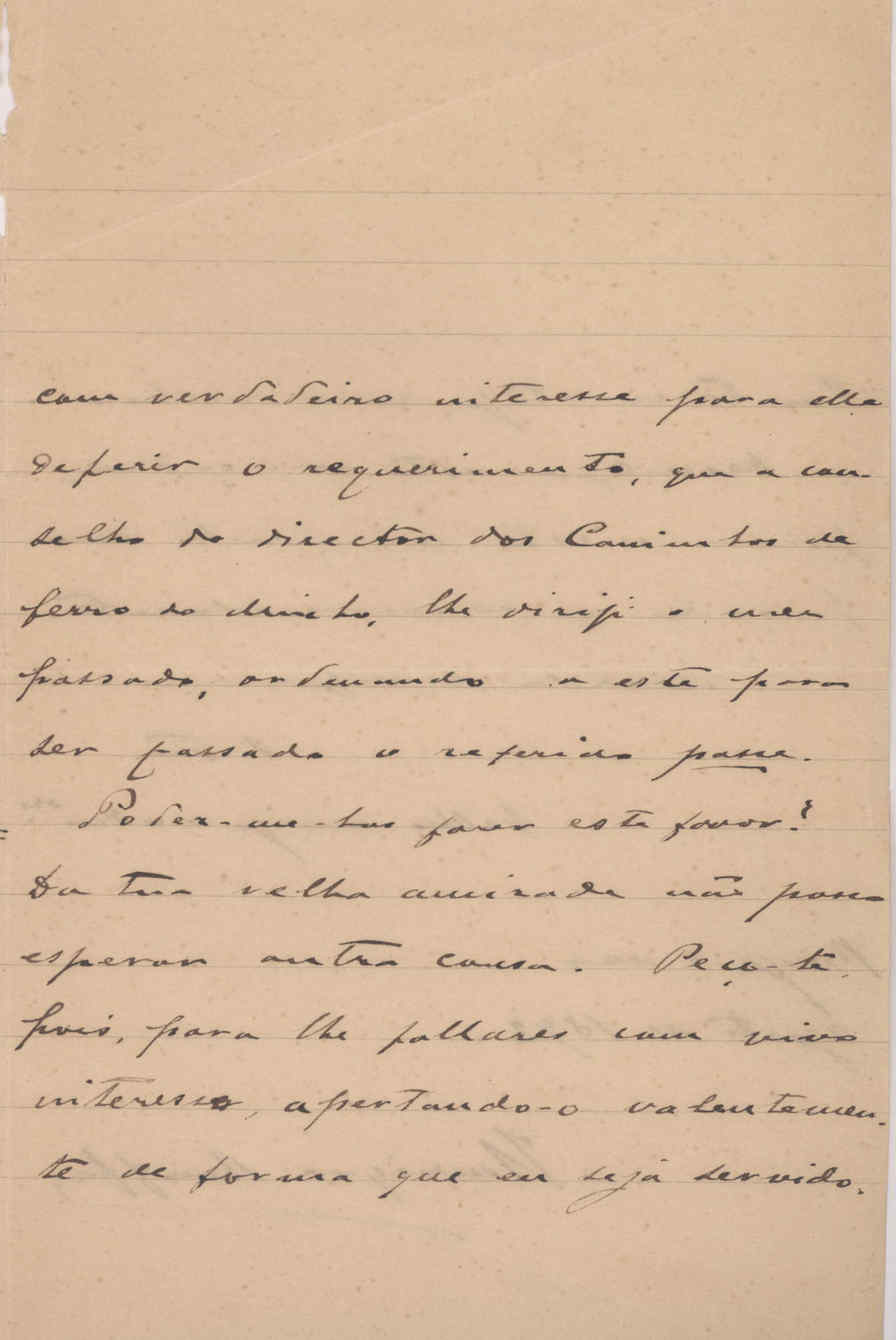 com verdadeiro interesse para elle
deferir o requerimento, que a con-
selho do director dos Caminhos de
ferro do Minho, lhe dirigi o mez
passado, ordenando a este para
ser passado o referido passe.
Poder-me-has fazer este favor?
Da tua velha amizade não posso
esperar outra cousa. Peço-te
pois, para lhe fallares com vivo
interesse, apertando-o valentemen-
te de forma que eu seja servido.